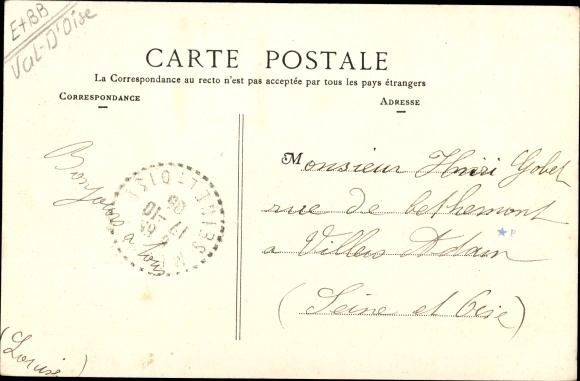 E+BB
Val-D'Oise
CARTE POSTALE
La Correspondance au recto n'est pas acceptée par tous les pays étrangers
CORRESPONDANCE
ADRESSE
Bonjour
a tous
(Louise)
Monsieur Henri Gobet
rue de bethemont
a Villiers Adam
(Seine et Oise)